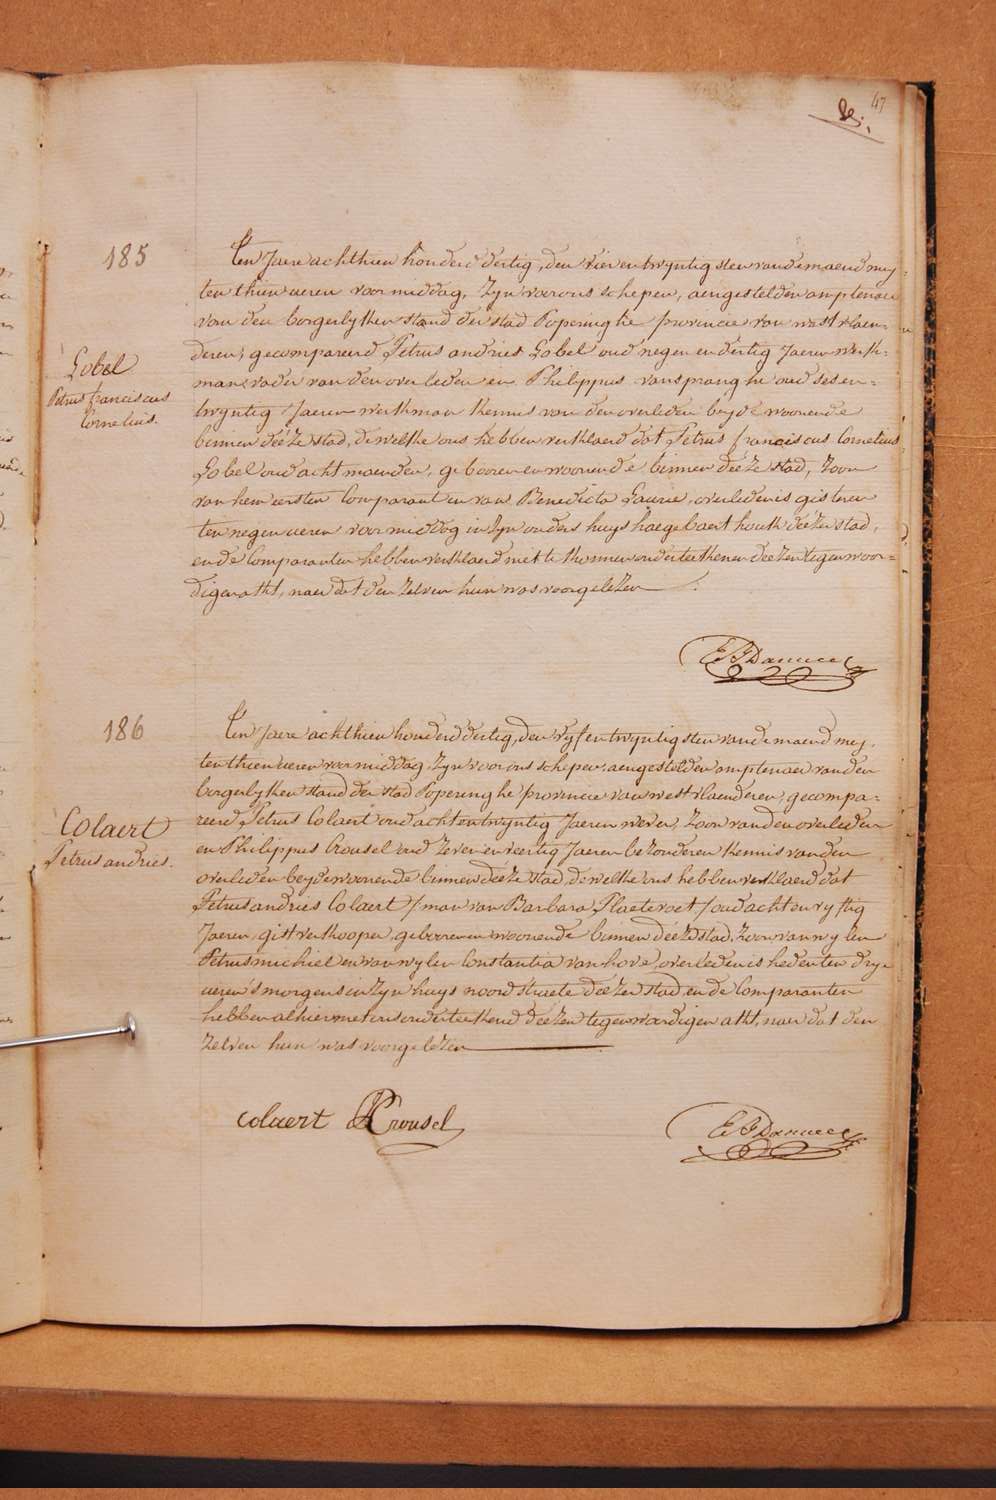 47
185
Ten Jaere achthien honderd dertig, den vier en twyntigsten van de maend mey,
ten thien ueren voormiddag, Zyn voor ons schepen, aengestelden amptenaer
van den borgerlyken stand der stad Poperinghe provincie van westvlaen=
deren; gecompareerd Petrus andries Gobel oud negen en dertig Jaeren werk=
man, vader van den overleden en Philippus vanspranghe oud ses en=
twyntig Jaeren werkman kennis van den overleden beyde woonende
binnen deéze stad, de welke ons hebben verklaerd dat Petrus franciscus Cornelius
Gobel oud acht maenden, gebooren en woonende binnen deéze stad, zoon
van hem eersten Comparant en van Benedicta Laurie, overleden is gisteren
ten negen ueren voormiddag in Zyn ouders huys haegebaert houk deézer stad,
en de Comparanten hebben verklaerd niet te konnen onderteekenen deézen tegenwoor=
digen akt, naer dat den zelven hun was voorgelezen
Gobel
Petrus franciscus
Cornelius.
186
Ten Jaere achthien honderd dertig, den vyf en twyntigsten van de maend mey,
ten thien ueren voormiddag, Zyn voor ons schepen, aengestelden amptenaer van den
borgerlyken stand der stad Poperinghe provincie van westvlaenderen; gecompa=
reerd Petrus Colaert oud acht en twyntig Jaeren wever, zoon van den overleden
en Philippus Crousel oud Zeven en veertig Jaeren bezonderen kennis van den
overleden beyde woonende binnen deéze stad, de welke ons hebben verklaerd dat
Petrus andries Colaert / man van Barbara Plaetevoet / oud acht en vyftig
Jaeren, gistverkooper, gebooren en woonende binnen deéze stad, zoon van wylen
Petrus michiel en van wylen Constantia vanhove, overleden is heden ten dry
ueren 'smorgens in Zyn huys noordstraete deézer stad, en de Comparanten
hebben alhier met ons onderteekend deézen tegenwoordigen akt, naer dat den
zelven hun was voorgelezen
Colaert
Petrus andries.
colaert PCrousel